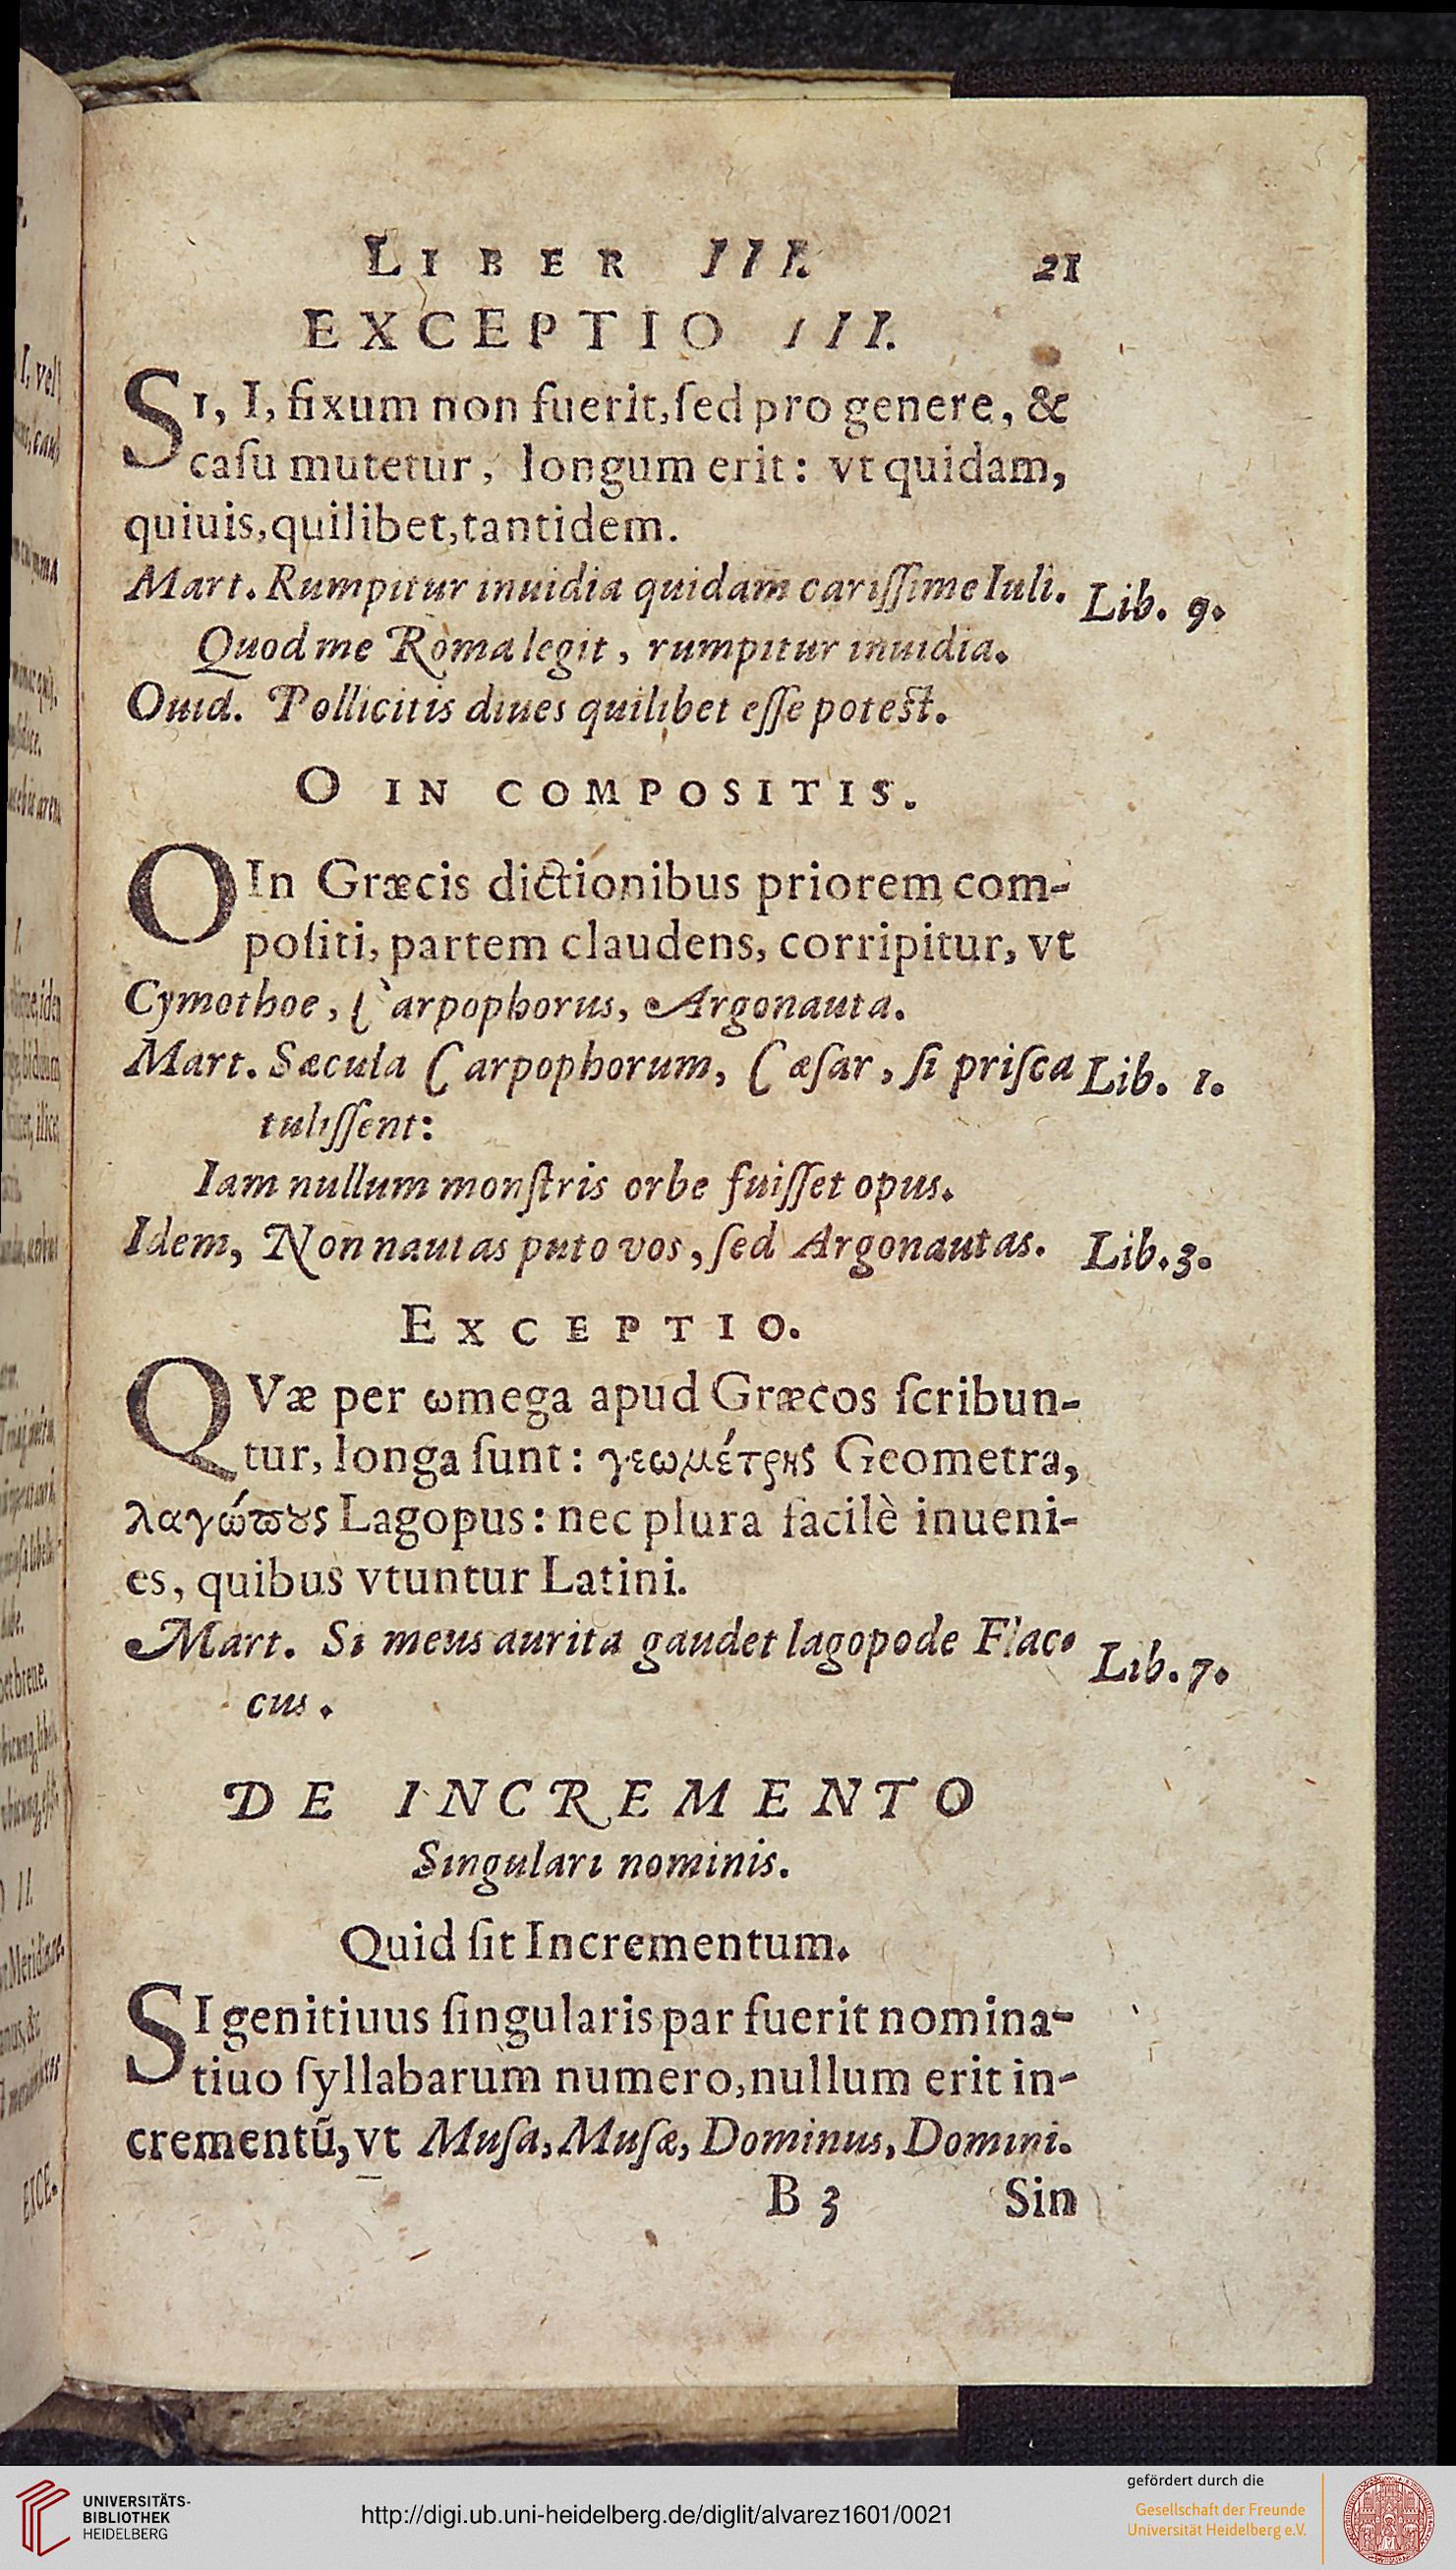 LIBER III. 21
EXCEPTIO III.
SI, I, fixum non fuerit, ſed pro genere, &
caſu mutetur, longum erit: vt quidam,
quiuis, quilibet, tantidem.
Mart. Rumpitur inuidia quidam cariſſime Iuli. Lib. 9.
Quod me Roma legit, rumpitur inuidia.
Ouid. Pollicitis diues quilibet eſſe poteſt.
O IN COMPOSITIS.
O In Græcis dictionibus priorem com-
poſiti, partem claudens, corripitur, vt
Cymothoe, Carpophorus, Argonauta.
Mart. Sæcula Carpophorum, Cæſar, ſi priſca Lib. 1.
tuliſſent:
Iam nullum monſtris orbe fuiſſet opus.
Idem, Non nautas puto vos, ſed Argonautas. Lib. 3.
EXCEPTIO.
QVæ per ωmega apud Græcos ſcribun-
tur, longa ſunt: γεωμέτρης Geometra,
λαγώπους Lagopus: nec plura facilè inueni-
es, quibus vtuntur Latini.
Mart. Si meus aurita gaudet lagopode Flac- Lib. 7.
cus.
DE INCREMENTO
Singulari nominis.
Quid ſit Incrementum.
SI genitiuus ſingularis par fuerit nomina-
tiuo ſyllabarum numero, nullum erit in-
crementū, vt Muſa, Muſæ, Dominus, Domini.
B 3 Sin
UNIVERSITÄTS-
BIBLIOTHEK
HEIDELBERG
http://digi.ub.uni-heidelberg.de/diglit/alvarez1601/0021
gefördert durch die
Gesellschaft der Freunde
Universität Heidelberg e.V.